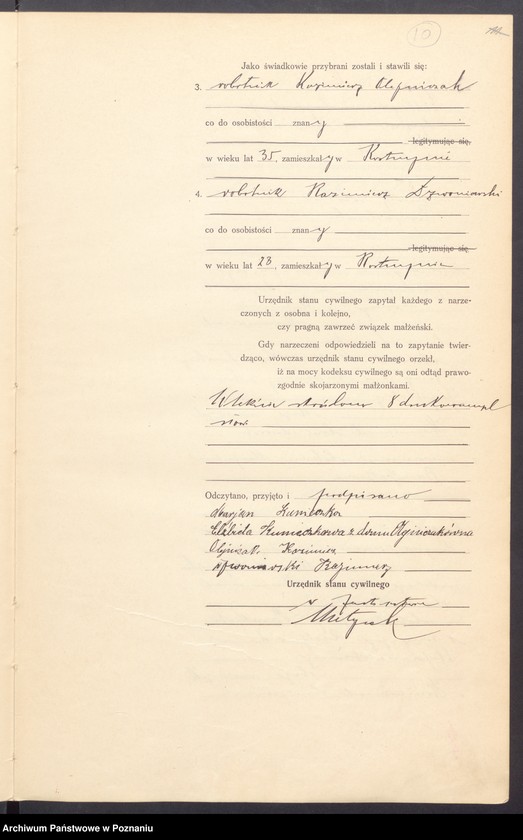 10
Jako świadkowie przybrani zostali i stawili się:
3. robotnik Kazimierz Olejniczak
co do osobistości znany
legitymując się,
w wieku lat 35, zamieszkały w Kostrzynie
4. robotnik Kazimierz Dzwoniarski
co do osobistości znany
legitymując się
w wieku lat 28, zamieszkały w Kostrzynie
Urzędnik stanu cywilnego zapytał każdego z narze-
czonych z osobna i kolejno,
czy pragną zawrzeć związek małżeński.
Gdy narzeczeni odpowiedzieli na to zapytanie twier-
dząco, wówczas urzędnik stanu cywilnego orzekł,
iż na mocy kodeksu cywilnego są oni odtąd prawo-
zgodnie skojarzonymi małżonkami.
W tekście skreślono 8 drukowanych
słów.
Odczytano, przyjęto i podpisano
Marjan
Elżbieta z domu
Kazimierz
Kazimierz
Urzędnik stanu cywilnego
w zastępstwie
Archiwum Państwowe w Poznaniu